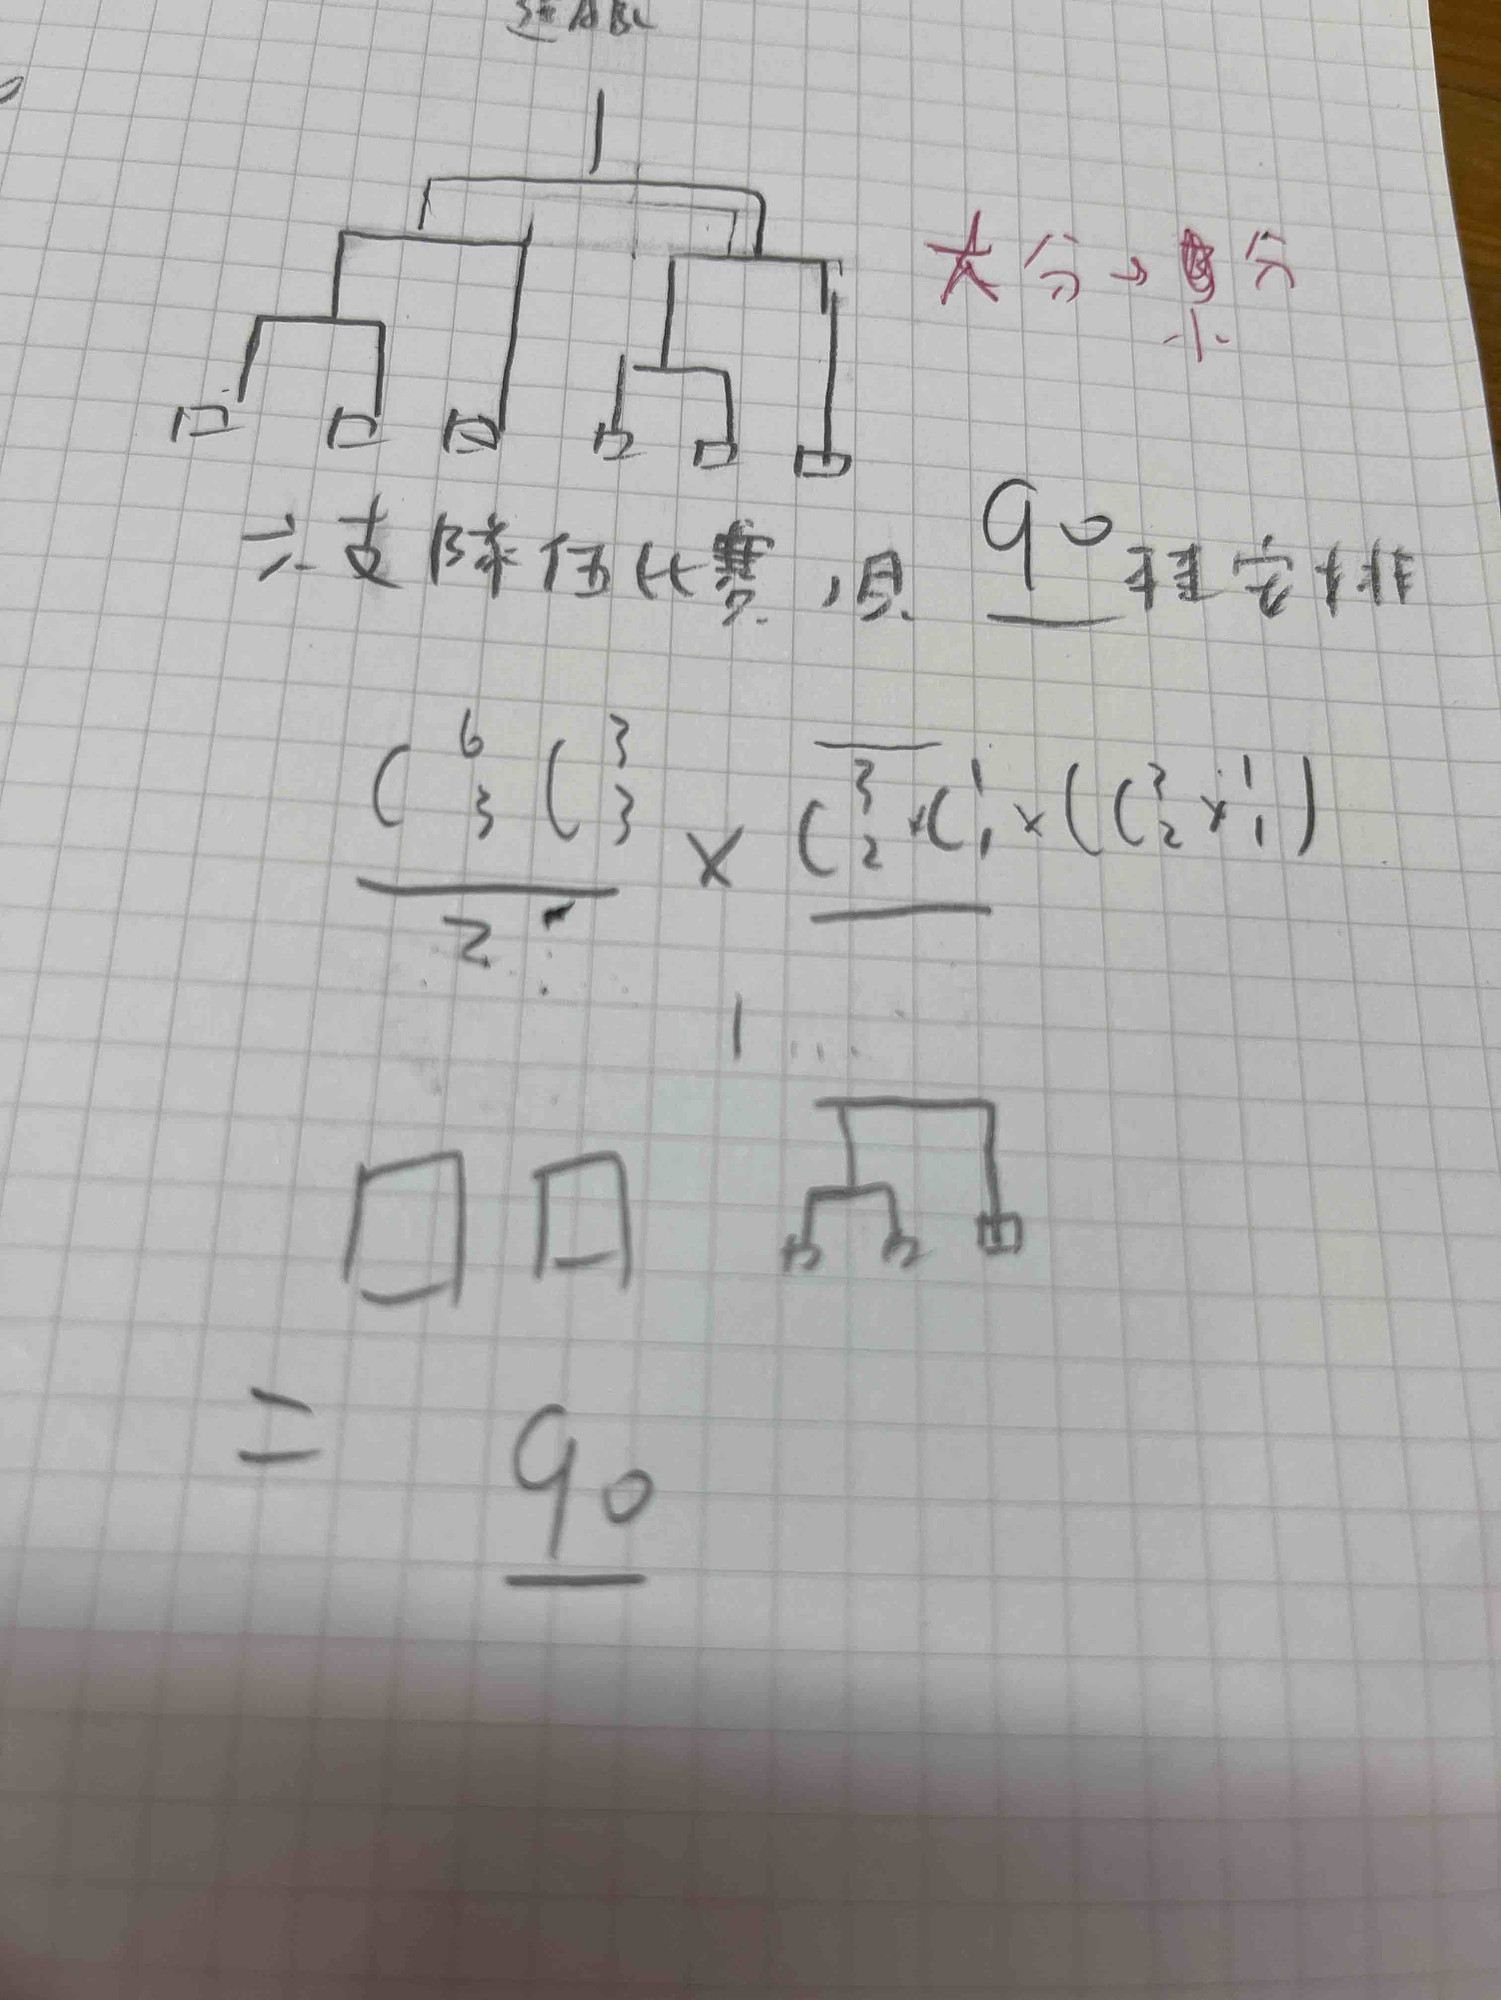 大分→分
小
六支隊伍比賽,具 90 種安排
C^6_3 C^3_3 / 2 × C^3_2 × C^1_1 × (C^3_2 × ^1_1)
= 90